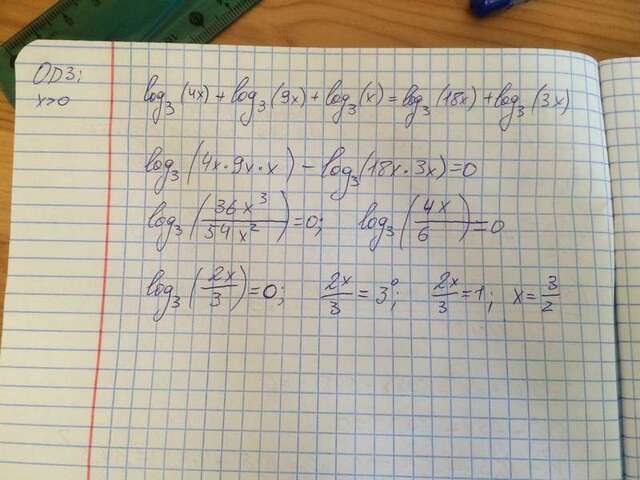 ОДЗ:
x>0
log₃(4x)+log₃(9x)+log₃(x)=log₃(18x)+log₃(3x)
log₃(4x·9x·x)-log₃(18x·3x)=0
log₃(36x³/54x²)=0; log₃(4x/6)=0
log₃(2x/3)=0; 2x/3=3⁰; 2x/3=1; x=3/2